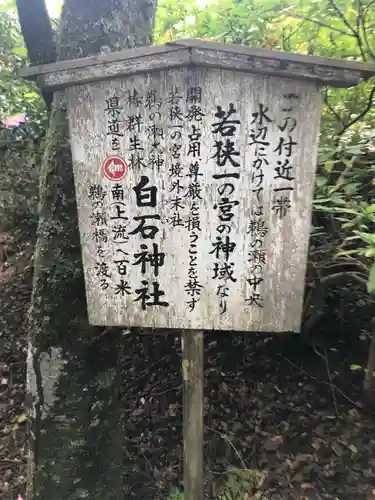 この付近一帯
水辺にかけては鵜の瀬の中央
若狭一の宮の神域なり
開発占用尊厳を損うことを禁ず
若狭一の宮境外末社
白石神社
鵜の瀬水神
椿群生林
南(上流)へ百米
県道を
鵜の瀬橋を渡る